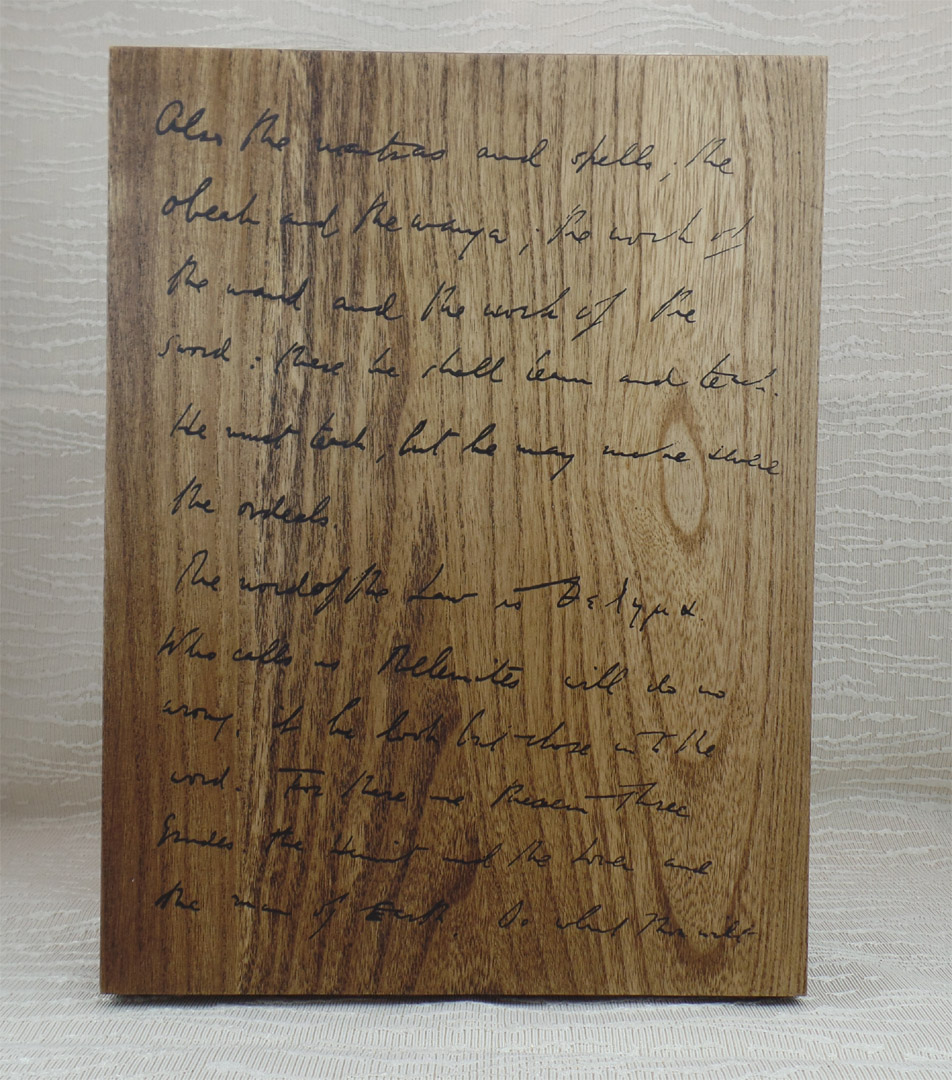 Also the mantras and spells; the
obeah and the wanga; the work of
the wand and the work of the
sword: these he shall learn and teach.
He must teach; but he may make severe
the ordeals.
The word of the Law is Θελημα.
Who calls us Thelemites will do no
wrong, if he look but close into the
word. For there are therein Three
Grades, the Hermit and the Lover and
the man of Earth. Do what thou wilt